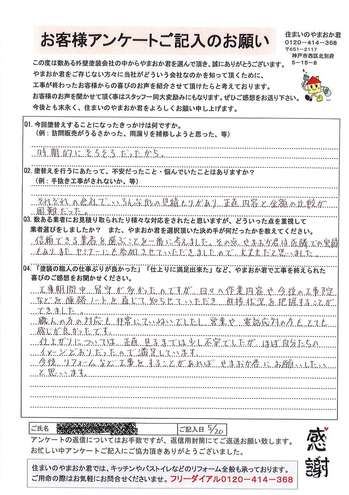 お客様アンケートご記入のお願い
住まいのやまおか君
0120-414-368
神戸市西区北別府
5-15-8
この度は数ある外壁塗装会社の中からやまおか君を選んで頂き、誠にありがとうございます。
やまおか君をご存じない方々に当社がどういう会社なのかを知って頂くために、
工事が終わったお客様からの喜びのお声を紹介させて頂けたらと考えております。
お客様のお声を聞かせて頂く事はスタッフ一同大変励みにもなります。ぜひご感想をお送り下さい。
今後とも末永く、住まいのやまおか君をよろしくお願い申し上げます。
Q1.今回塗替えすることになったきっかけは何ですか。
(例:訪問販売がうるさかった、雨漏りを補修しようと思った、等)
時期的にそろそろだったから。
Q2.塗替えを行うにあたって、不安だったこと・悩んでいたことはありますか?
(例:手抜き工事がないか、等)
それぞれの会社でいろんな形の見積もりがあり、正直内容と金額の比較が
困難だった。
Q3.数ある業者にお見積り取られたり様々な対応をされたと思いますが、どういった点を重視して
業者選びをしましたか? また、やまおか君を選択頂いた決め手が何だったかを教えてください。
信頼できる業者を選ぶことを一番に考えました。その点、やまおか君は近隣での実績
もあり、またセミナーにも参加させていただきましたので、大丈夫だと思いました。
Q4.「塗装の職人の仕事ぶりが良かった」「仕上りに満足出来た」など、やまおか君で工事を終えられた
喜びのご感想をお聞かせください。
工事期間中、留守が多かったのですが、日々の作業内容や今後の工事予定
などを連絡ノートを通じて知らせていただき、進捗状況を把握することが
できました。
職人の方の対応も非常にていねいでしたし、営業や電話応対の方もとても
感じが良かったです。
仕上がりについては、正直見るまでは少し不安でしたが、ほぼ自分たちの
イメージどおりだったので満足しています。
今後リフォームなど工事をすることがあれば、やまおか君にお願いしたい
と思います。
ご氏名
ご記入日 5/20
アンケートの返信についてはお手数ですが、返信用封筒にてご返送お願い致します。
お忙しい中アンケートに記入にご協力頂きありがとうございました。
感謝
住まいのやまおか君では、キッチンやバストイレなどのリフォーム全般も承っております。
ご用命の際はお気軽にお問合せくださいませ。フリーダイアル0120-414-368